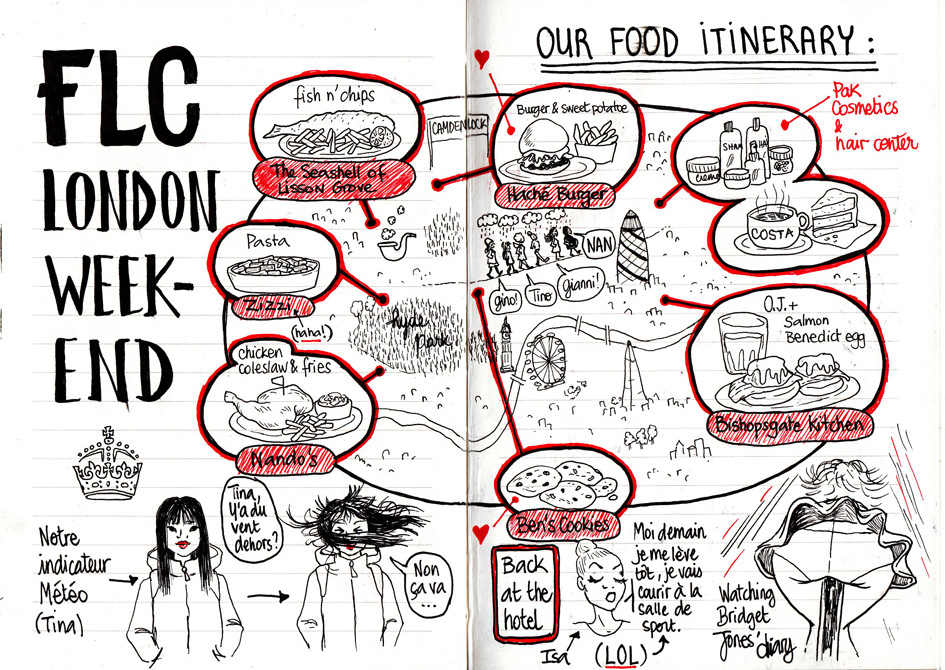 FLC
LONDON
WEEK-
END
OUR FOOD ITINERARY :
fish n' chips
The Seashell of
Lisson Grove
CAMDEN LOCK
Burger & sweet potatoe
Haché Burger
Pak
Cosmetics
&
hair center
SHAM
CREME
COSTA
Pasta
Zizzi
(haha!)
NAN
gino!
Tino
gianni!
hyde
park
O.J. +
Salmon
Benedict egg
Bishopsgate Kitchen
chicken
coleslaw & fries
Nando's
Ben's Cookies
Notre
indicateur
Météo
(Tina)
Tina,
Y'a du
vent
dehors?
Non
ça va
...
Back
at the
hotel
Isa
Moi demain
je me lève
tôt, je vais
courir à la
salle de
sport.
(LOL)
Watching
Bridget
Jones' diary